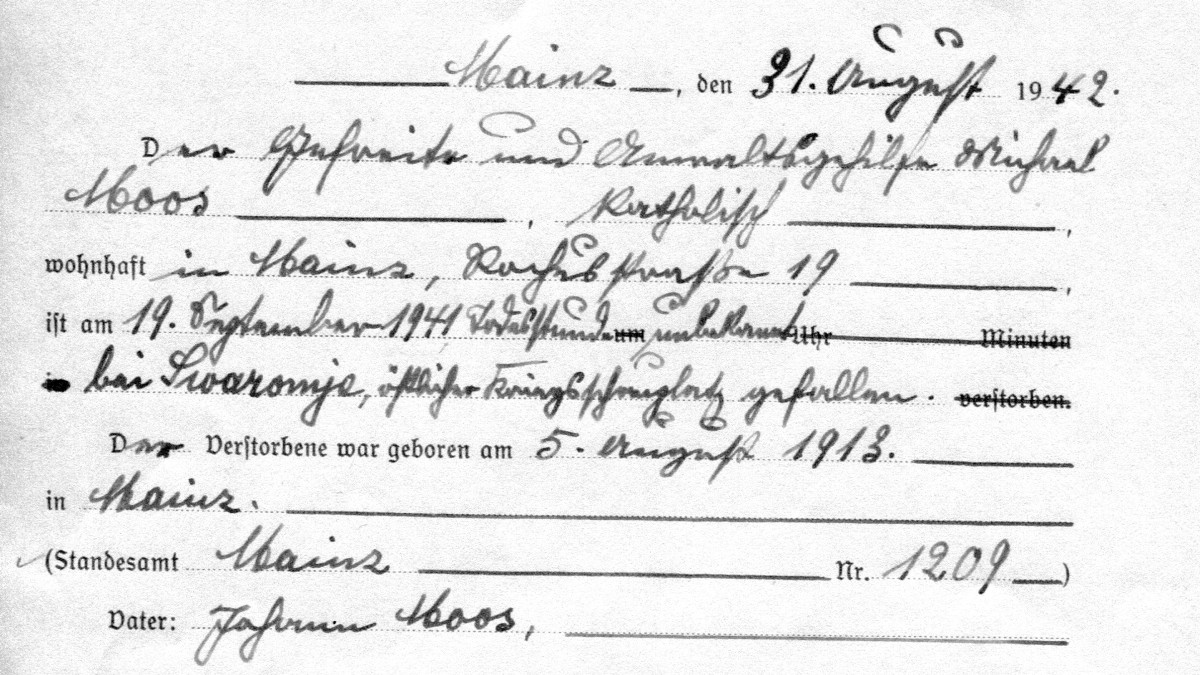 Mainz, den 31. August 1942.
Der Gefreite und Anwaltsgehilfe Michael
Moos, katholisch,
wohnhaft in Mainz, Rochusstraße 19,
ist am 19. September 1941 Todesstunde um unbekannt Uhr Minuten
in bei Swaromje, östlicher Kriegsschauplatz gefallen. verstorben.
Der Verstorbene war geboren am 5. August 1913.
in Mainz.
(Standesamt Mainz Nr. 1209)
Vater: Johann Moos,